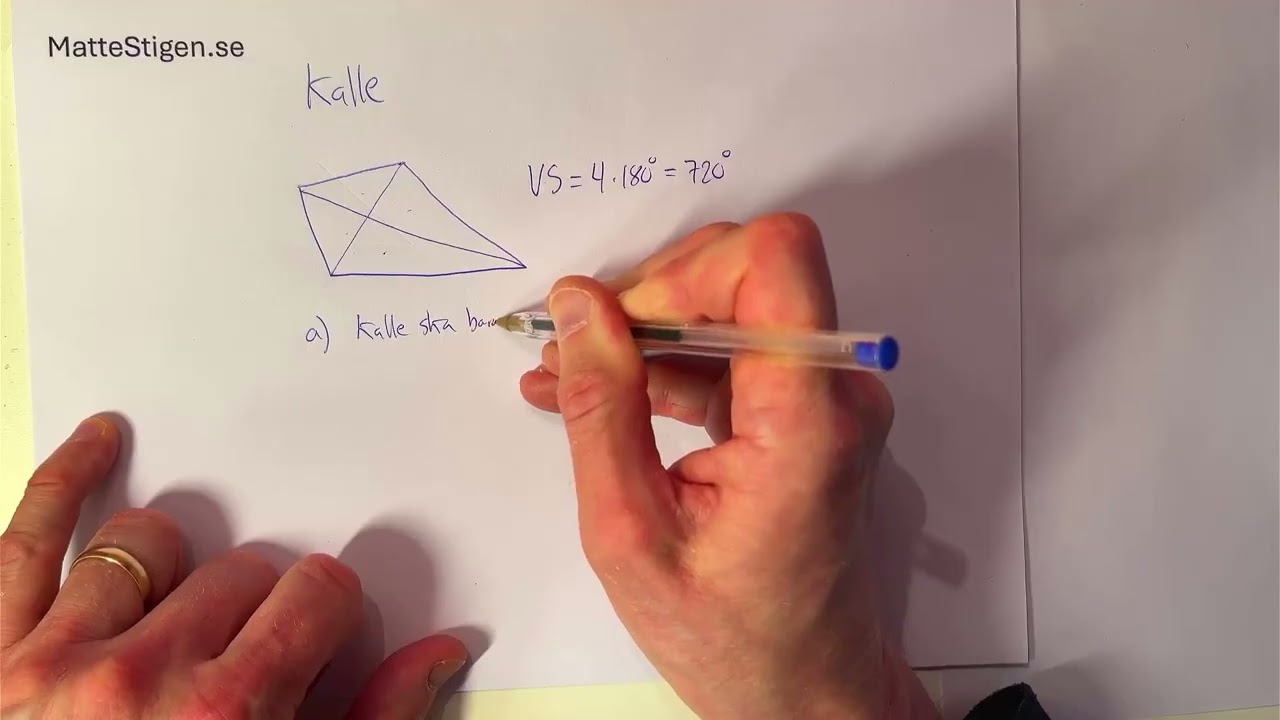 MatteStigen.se
Kalle
VS = 4·180° = 720°
a) Kalle ska bara